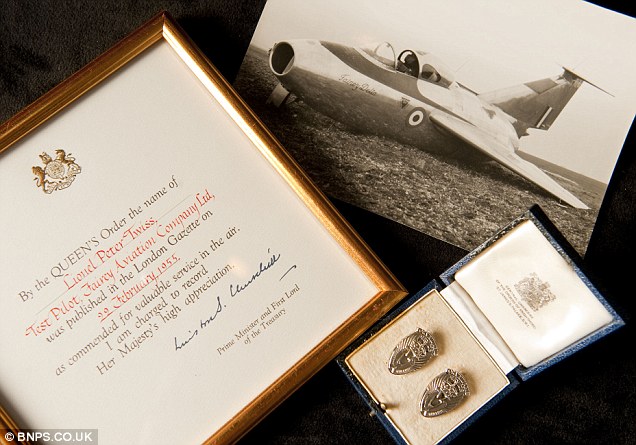 By the QUEEN'S Order the name of
Lionel Peter Twiss,
Test Pilot, Fairey Aviation Company Ltd,
was published in the London Gazette on
22 February, 1955,
as commended for valuable service in the air.
I am charged to record
Her Majesty's high appreciation.
Winston S. Churchill
Prime Minister and First Lord
of the Treasury
© BNPS.CO.UK